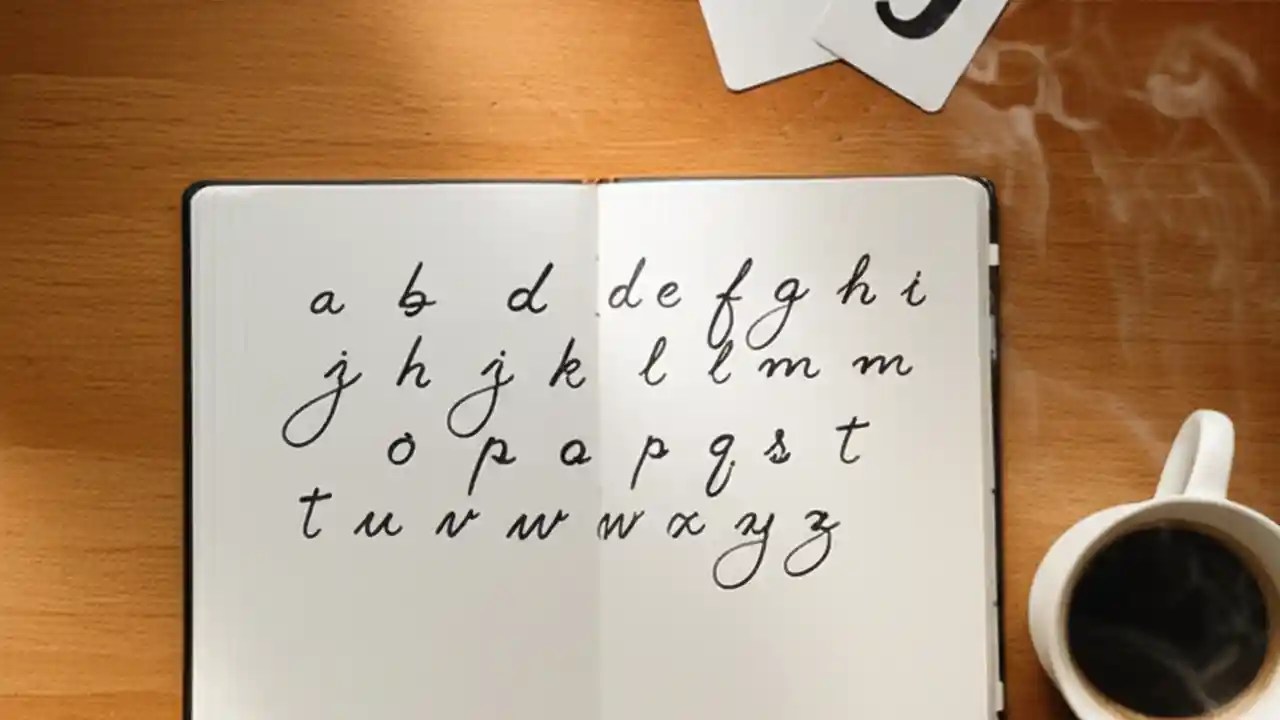 a b d d e f g h i
j h j k l l m m
o p a p q s t
t u v w w x y z